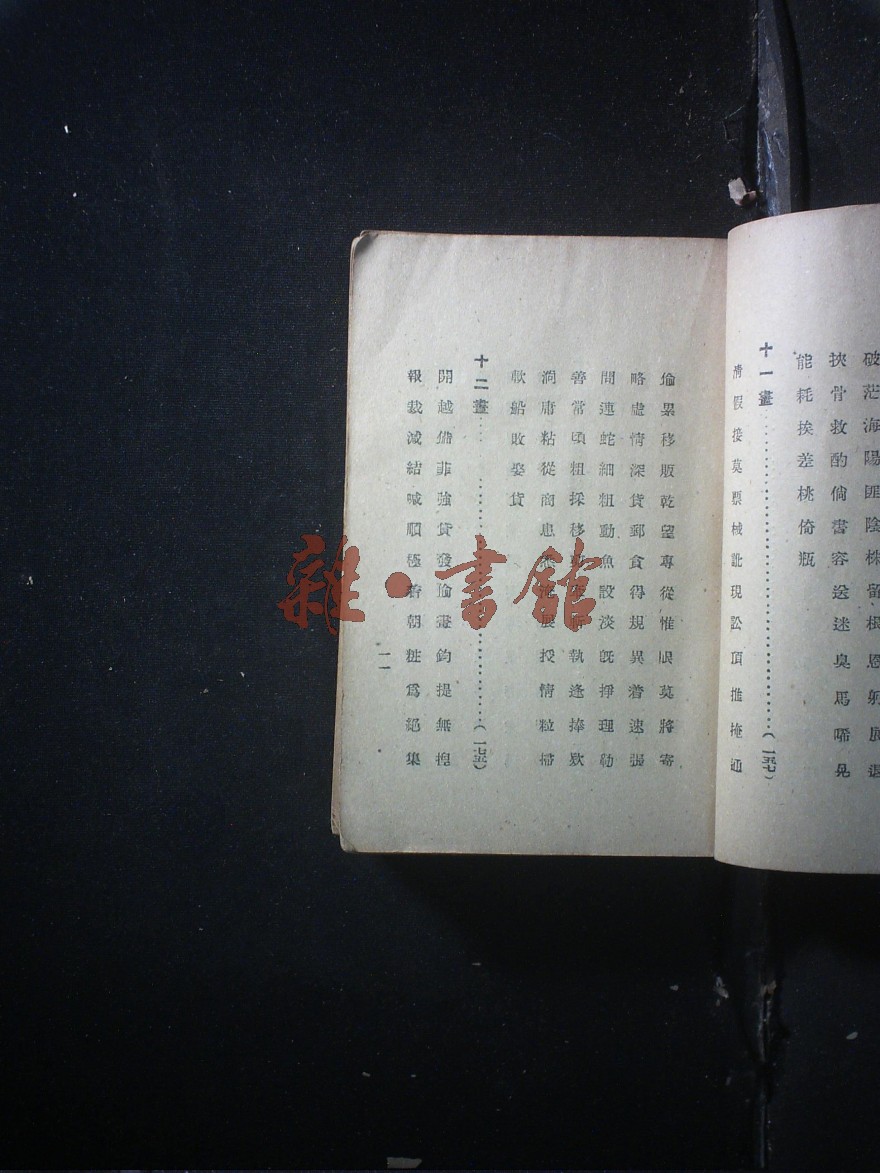 破茫海陽匪陰株留根恩躬展退
挾骨救酌倘書容送迷臭馬唏晃
能耗挨差桃倚瓶
十一畫……………………(一五七)
清假接莫票械訛現訟頂推掩通
偷累移販乾望專從惟眼莫將寄
略處情深貨郵貪得規異着速張
閉連蛇細粗動魚設淡旣掙理勒
善常頃粗採移執逢捧欵
淘庸粘從商患展授情粒掃
軟船敗娶貨
十二畫……………………(一七五)
開越備菲強貸發鈞提無揑
報裁減結喊順極着朝粧爲絕集
一一
雜·書館